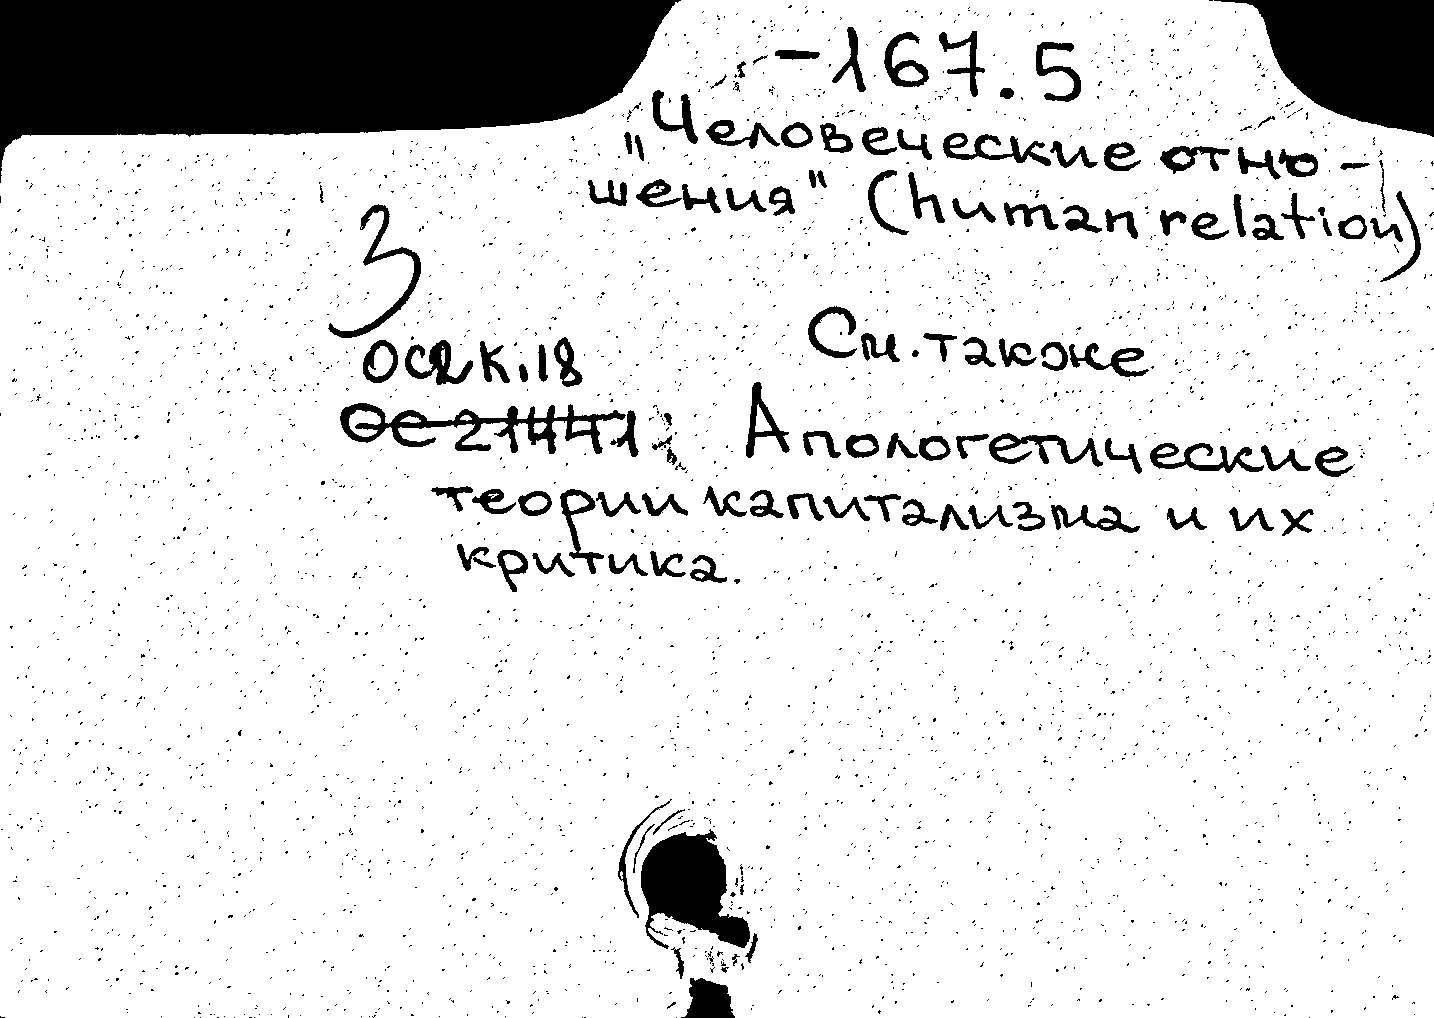 -167.5
"Человеческие отно-
шения" (human relation)
3
ОС2К.18
См. также
ОС 21441
Апологетические
теории капитализма и их
критика.